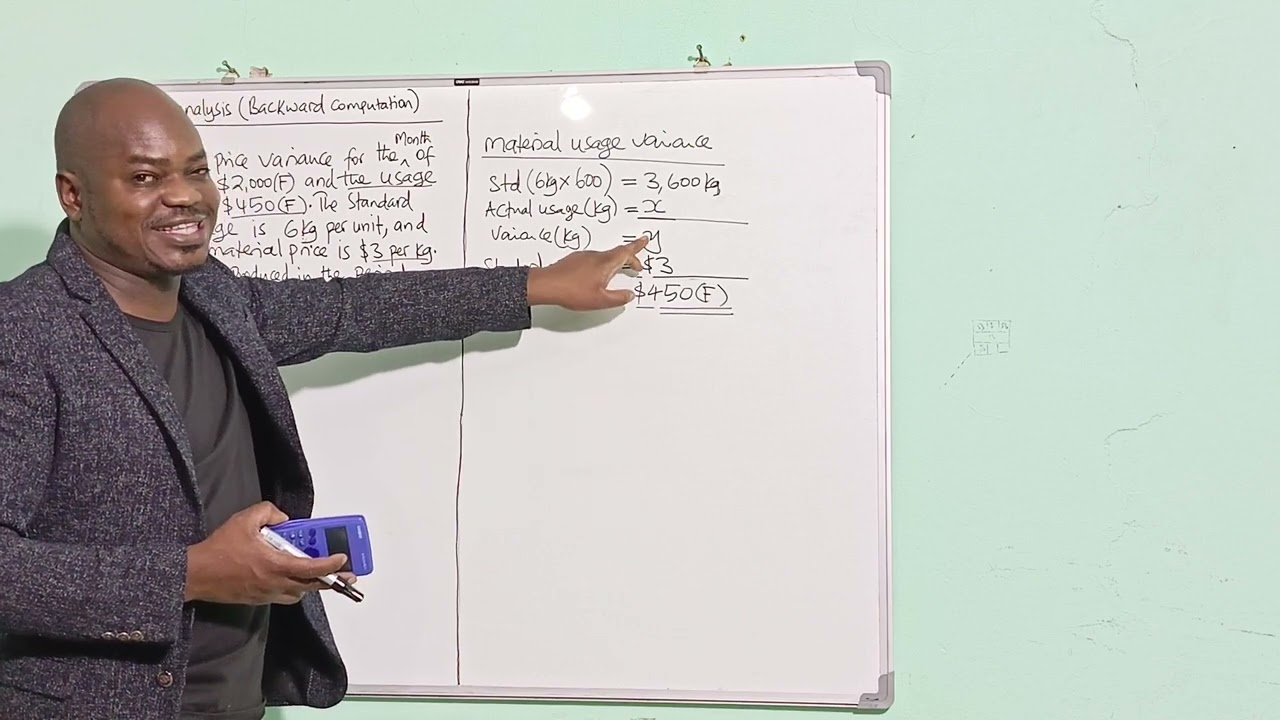 nalysis (Backward Computation)
Month
price variance for the ^ of
$2,000(F) and the usage
$450(F). The Standard
ge is 6kg per unit, and
material price is $3 per kg.
Produced in the Period
material usage variance
Std (6kg x 600) = 3,600kg
Actual usage(kg) = x
Variance(kg) = y
= $3
$450(F)